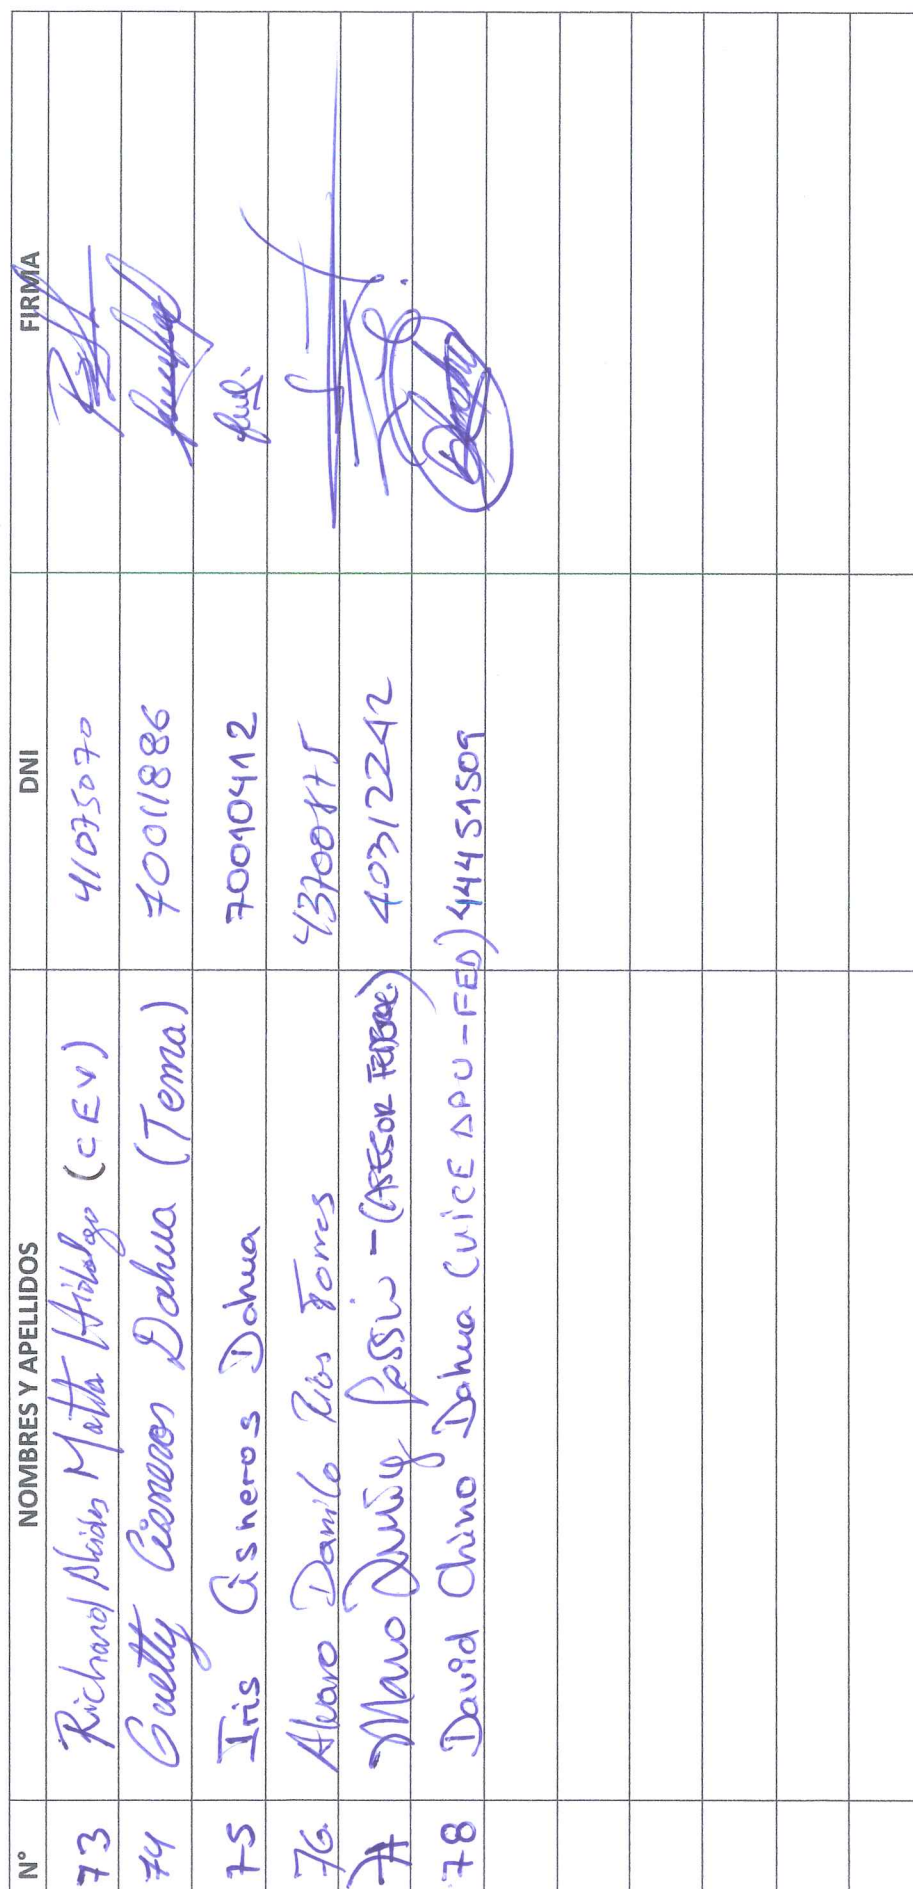 N° NOMBRES Y APELLIDOS DNI FIRMA
73 Richard Alcides Matta Hidalgo (CEV) 41075070
74 Guetty Cisneros Dahua (Tema) 70011886
75 Iris Cisneros Dahua 70010412
76 Alvaro Danilo Rios Torres
77 (ASESOR FEDERAL) 40312242
78 David Chino Dahua (VICE APU-FED) 44451509